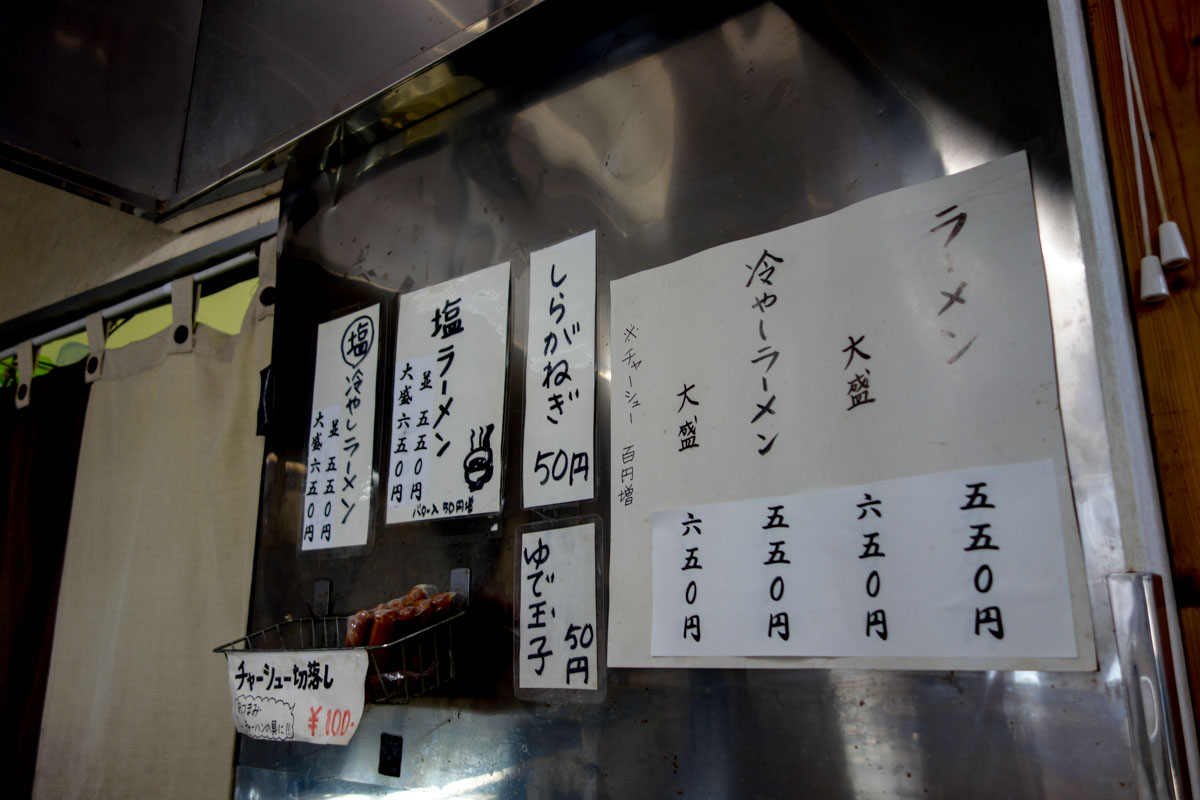 ラーメン 五五〇円
大盛 六五〇円
冷やしラーメン 五五〇円
大盛 六五〇円
※チャーシュー 百円増
しらがねぎ
50円
ゆで玉子
50円
塩ラーメン
並 五五〇円
大盛 六五〇円
バター入 50円増
塩冷やしラーメン
並 五五〇円
大盛 六五〇円
チャーシュー切落し
おつまみ
チャーハンの具に!!
¥100-